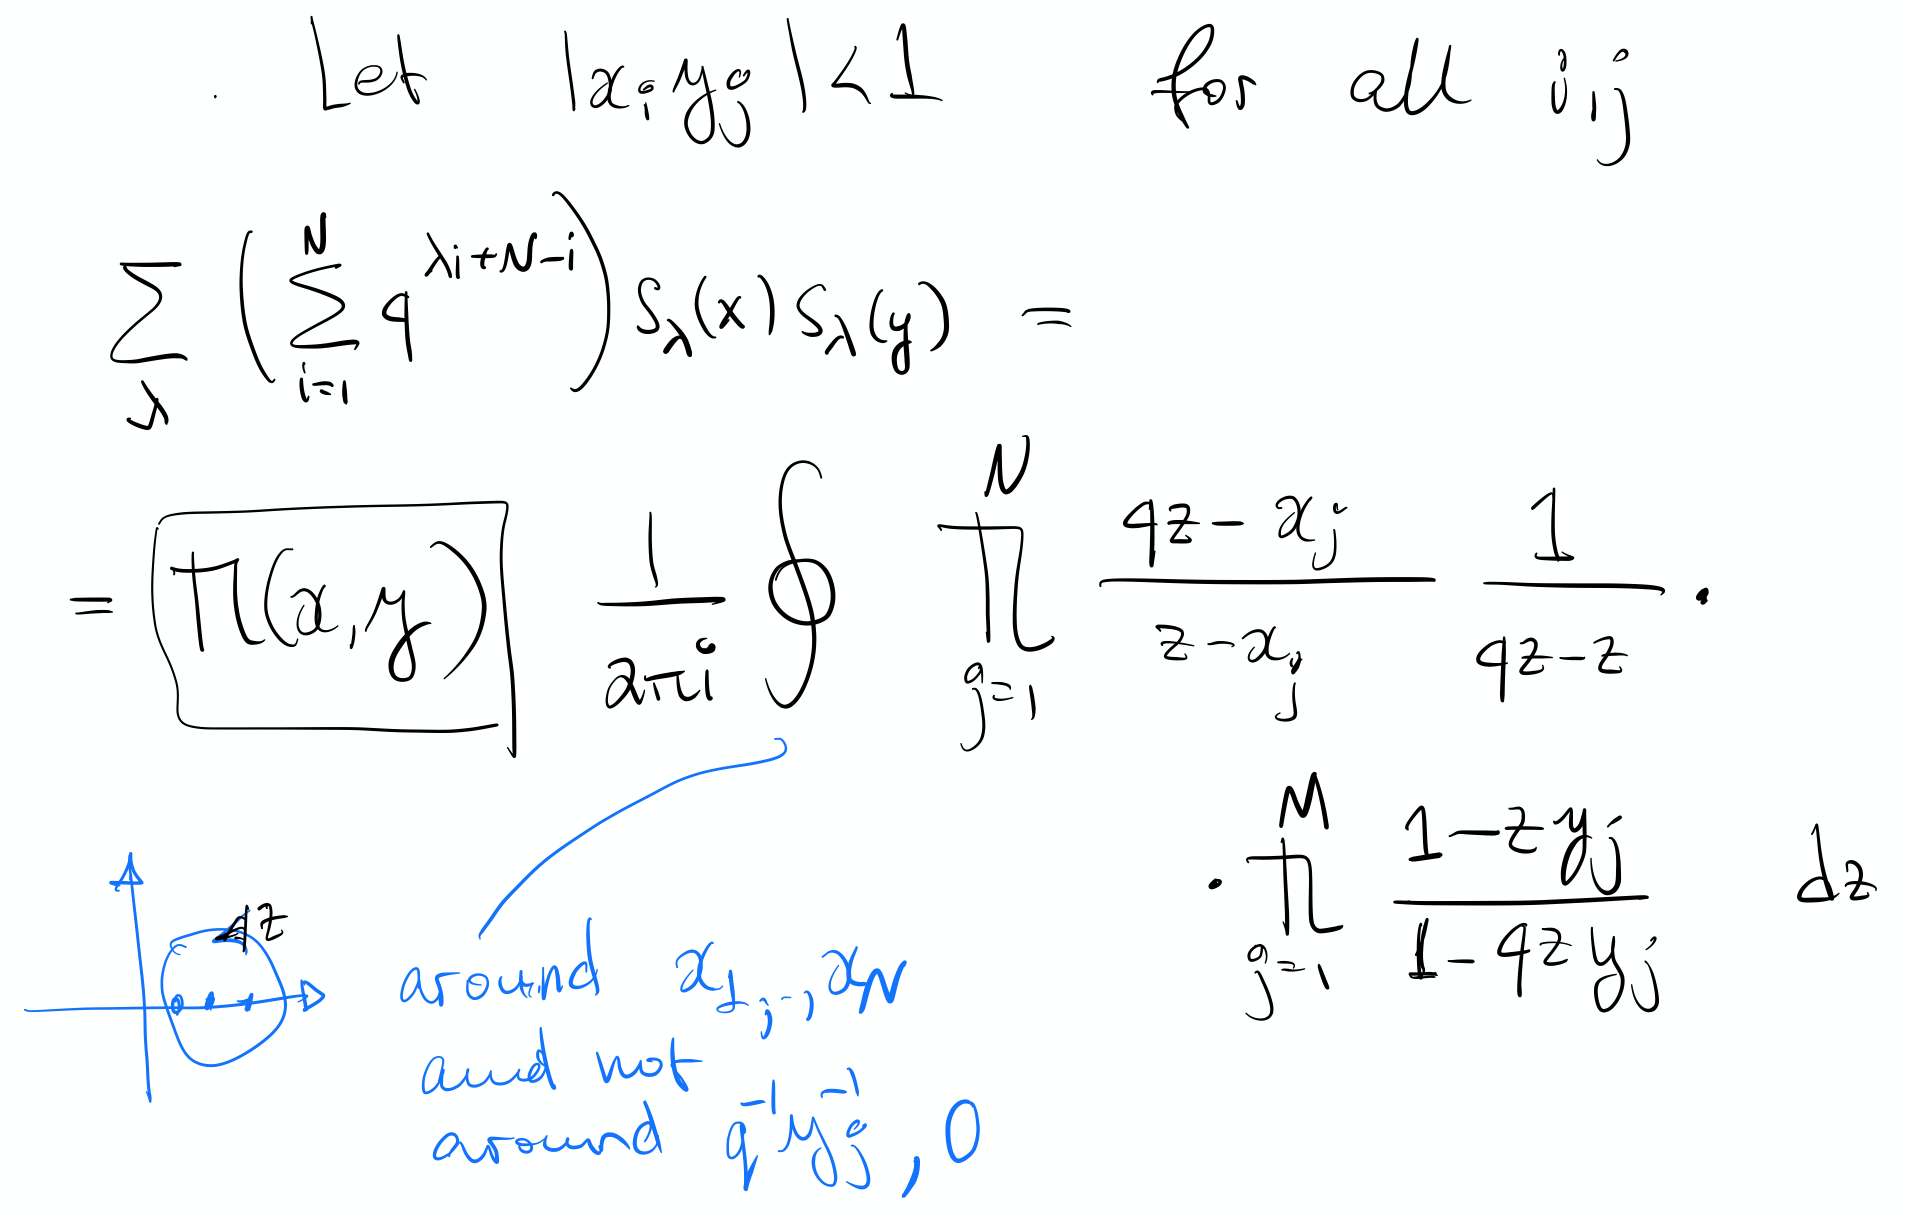 Let |x_i y_j| < 1 for all i,j
∑_λ ( ∑_{i=1}^{N} q^{λ_i+N-i} ) S_λ(x) S_λ(y) =
= Π(x,y) 1/(2πi) ∮ ∏_{j=1}^{N} (qz - x_j)/(z - x_j) 1/(qz - z) ·
· ∏_{j=1}^{M} (1 - z y_j)/(1 - q z y_j) dz
qz
around x_1, .., x_N
and not
around q^{-1} y_j^{-1}, 0